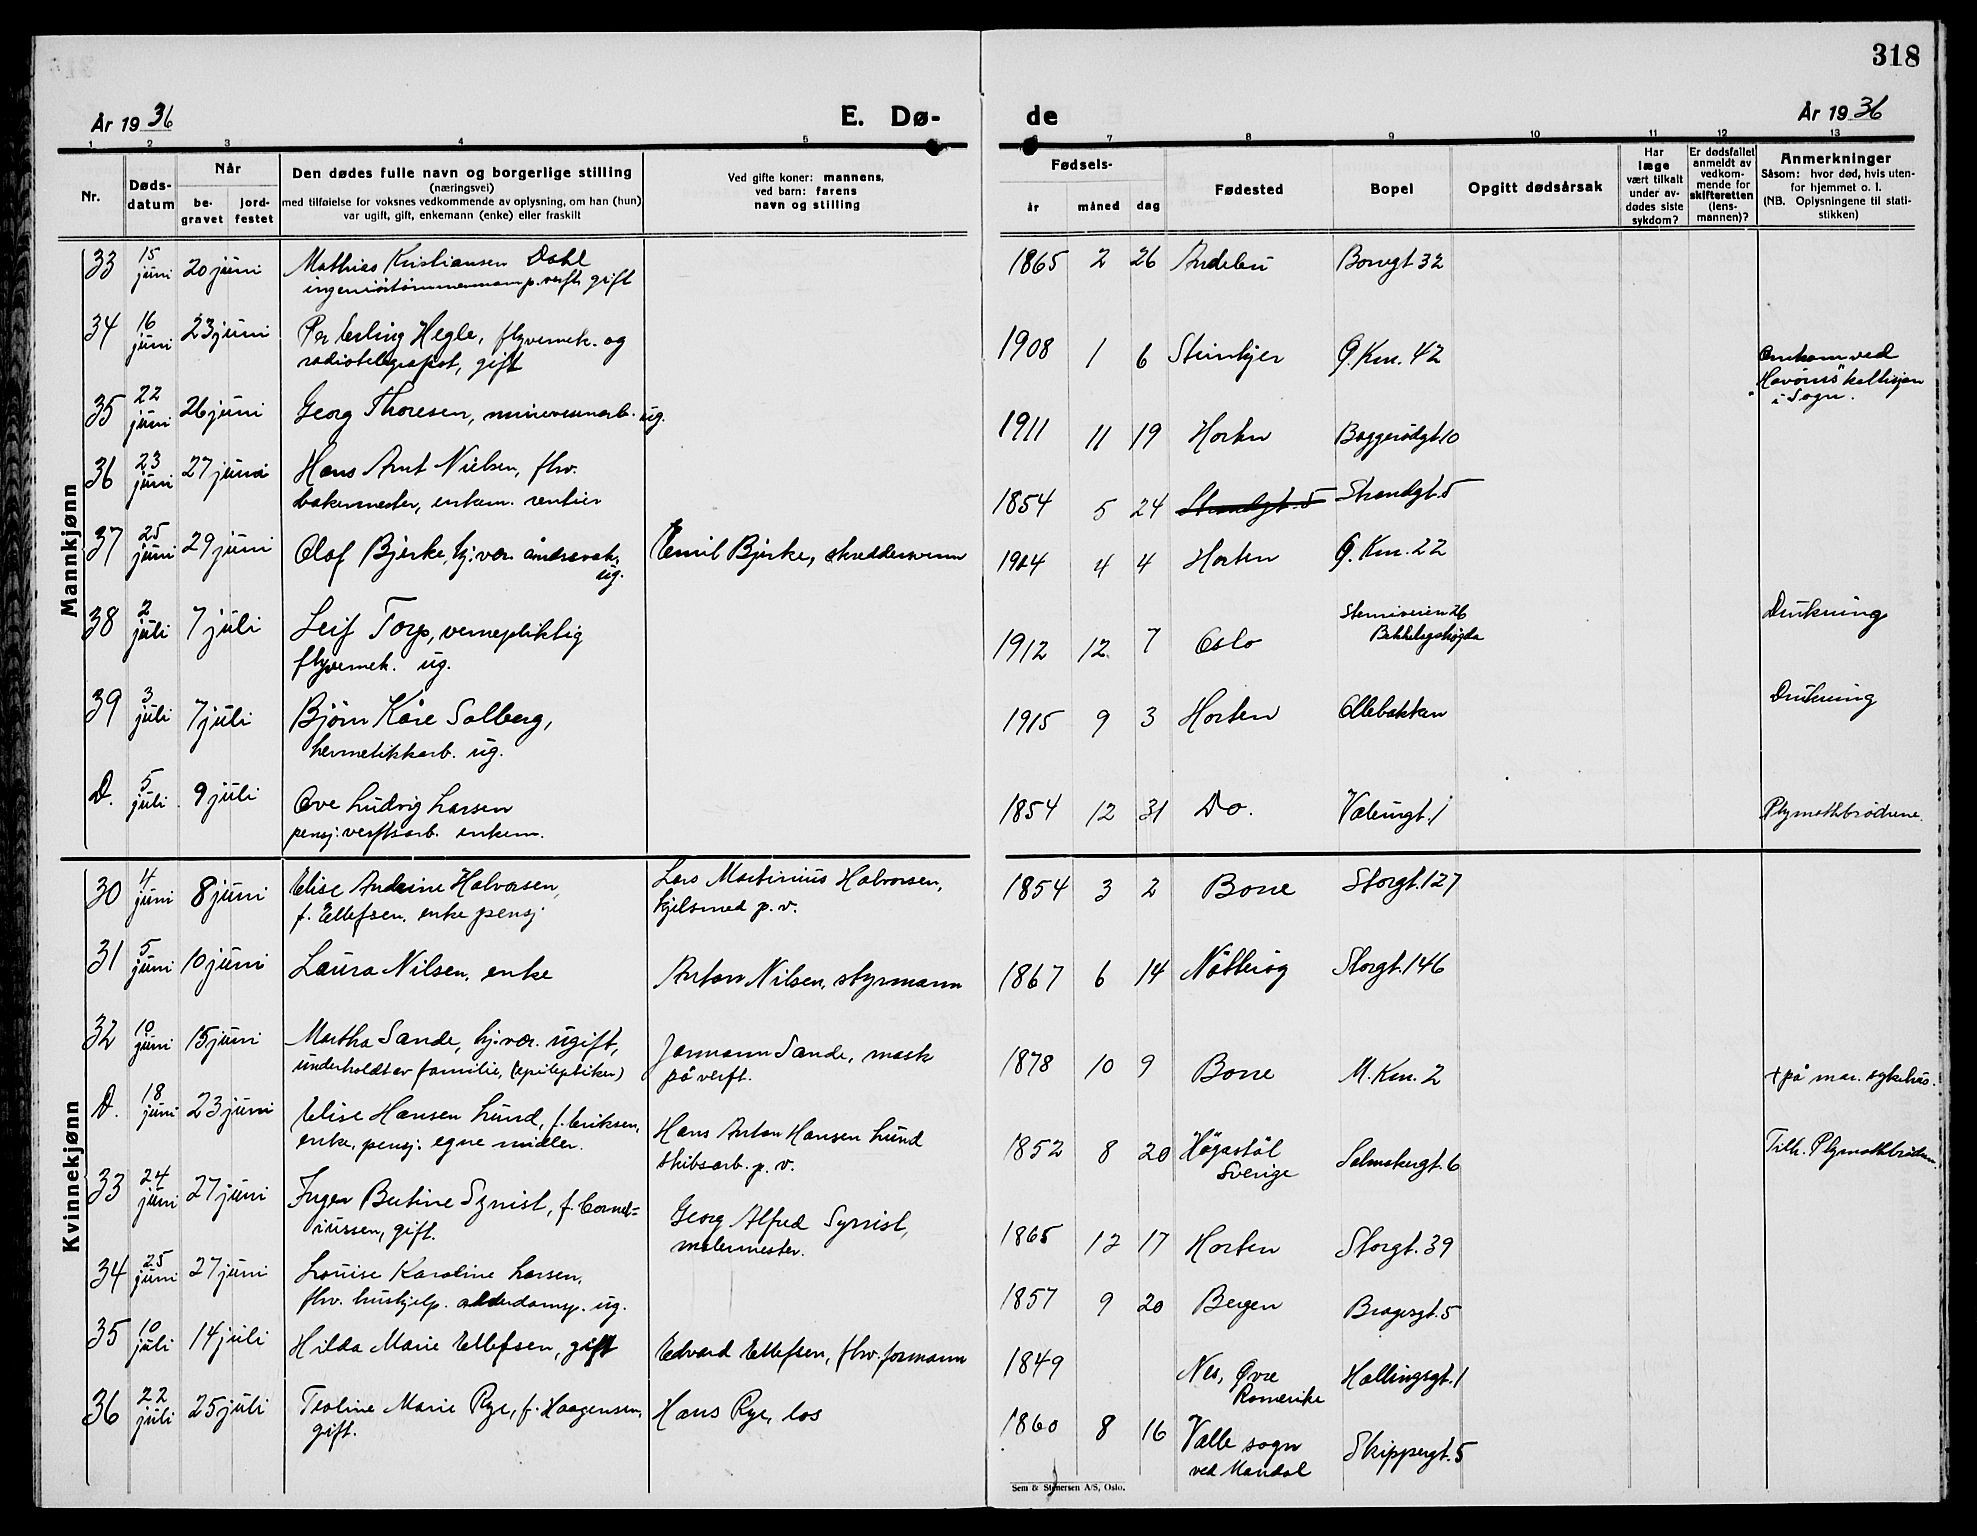 318
År 1936 E. Dø- de År 1936
1 2 3 4 5 6 7 8 9 10 11 12 13
Nr. Døds-datum Når be-gravet jord-festet
Den dødes fulle navn og borgerlige stilling
(næringsvei)
med tilføielse for voksnes vedkommende av oplysning, om han (hun)
var ugift, gift, enkemann (enke) eller fraskilt
Ved gifte koner: mannens,
ved barn: farens
navn og stilling
Fødsels- år måned dag
Fødested
Bopel
Opgitt dødsårsak
Har læge vært tilkalt under av-dødes siste sykdom?
Er dødsfallet anmeldt av vedkom-mende for skifteretten (lens-mannen)?
Anmerkninger
Såsom: hvor død, hvis uten-
for hjemmet o. l.
(NB. Oplysningene til stati-
stikken)
Mannkjønn
33 15 juni 20 juni Mathias Kristiansen Dahl 1865 2 26 Andebu Borregt 32
p. verft, gift
34 16 juni 23 juni Per Erling Hegle, flyvemek. og 1908 1 6 Steinkjer Ø. Km. 42 Omkom ved
radiotelegrafist, gift "Havörns" kollisjon
i Sogn.
35 22 juni 26 juni Georg Thoresen, minevesenarb. ug. 1911 11 19 Horten Baggerødgt. 10
36 23 juni 27 juni Hans Arnt Nielsen, fhv. 1854 5 24 Strandgt. 5 Strandgt. 5
bakermester, enkem. rentier
37 25 juni 29 juni Olaf Bjerke, hj.vær. åndssvak, Emil Bjerke, skreddersvenn 1904 4 4 Horten Ø. Km. 22
ug.
38 2 juli 7 juli Leif Torp, vernepliktig 1912 12 7 Oslo 26 Bekkelagshøgda Drukning
flyvemek. ug.
39 3 juli 7 juli Bjørn Kåre Solberg, 1915 9 3 Horten Ollebakken Drukning
hermetikkarb. ug.
D. 5 juli 9 juli Ove Ludvig Larsen 1854 12 31 Do. Valeurgt. 1 Plymothbrødrene.
pensj. verftsarb. enkem.
Kvinnekjønn
30 4 juni 8 juni Elise Andrine Halvorsen, Lars Martinius Halvorsen, 1854 3 2 Borre Storgt. 127
f. Ellefsen, enke pensj. kjelsmed p. v.
31 5 juni 10 juni Laura Nilsen, enke Anton Nilsen, styrmann 1867 6 14 Nøtterøy Storgt. 146
32 10 juni 15 juni Martha Sande, hj.vær. ugift, Jørmann Sande, mask 1878 10 9 Borre M. Km. 2 + på mar. sykehus.
underholdt av familie, (epileptiker) på verft.
D. 18 juni 23 juni Elise Hansen Lund, f. Eriksen, Hans Anton Hansen Lund 1852 8 20 Högastöl Sverige 6 Tilh. Plymothbrødrene.
enke, pensj. egne midler. skibsarb. p. v.
33 24 juni 27 juni Inger Bertine Synist, f. Cornel= Georg Alfred Synist, 1865 12 17 Horten Storgt. 39
iussen, gift. malermester.
34 25 juni 27 juni Louise Karoline Larsen, 1857 9 20 Bergen Bragesgt. 5
fhv. hushjelp. ug.
35 10 juli 14 juli Hilda Marie Ellefsen, gift Edvard Ellefsen, fhv. formann 1849 Nes, Øvre Romerike Hallingsgt. 1
36 22 juli 25 juli Teoline Marie Rye, f. Haagensen, Hans Rye, los 1860 8 16 Valle sogn ved Mandal Skippergt. 5
gift.
Sem & Stenersen A/S, Oslo.